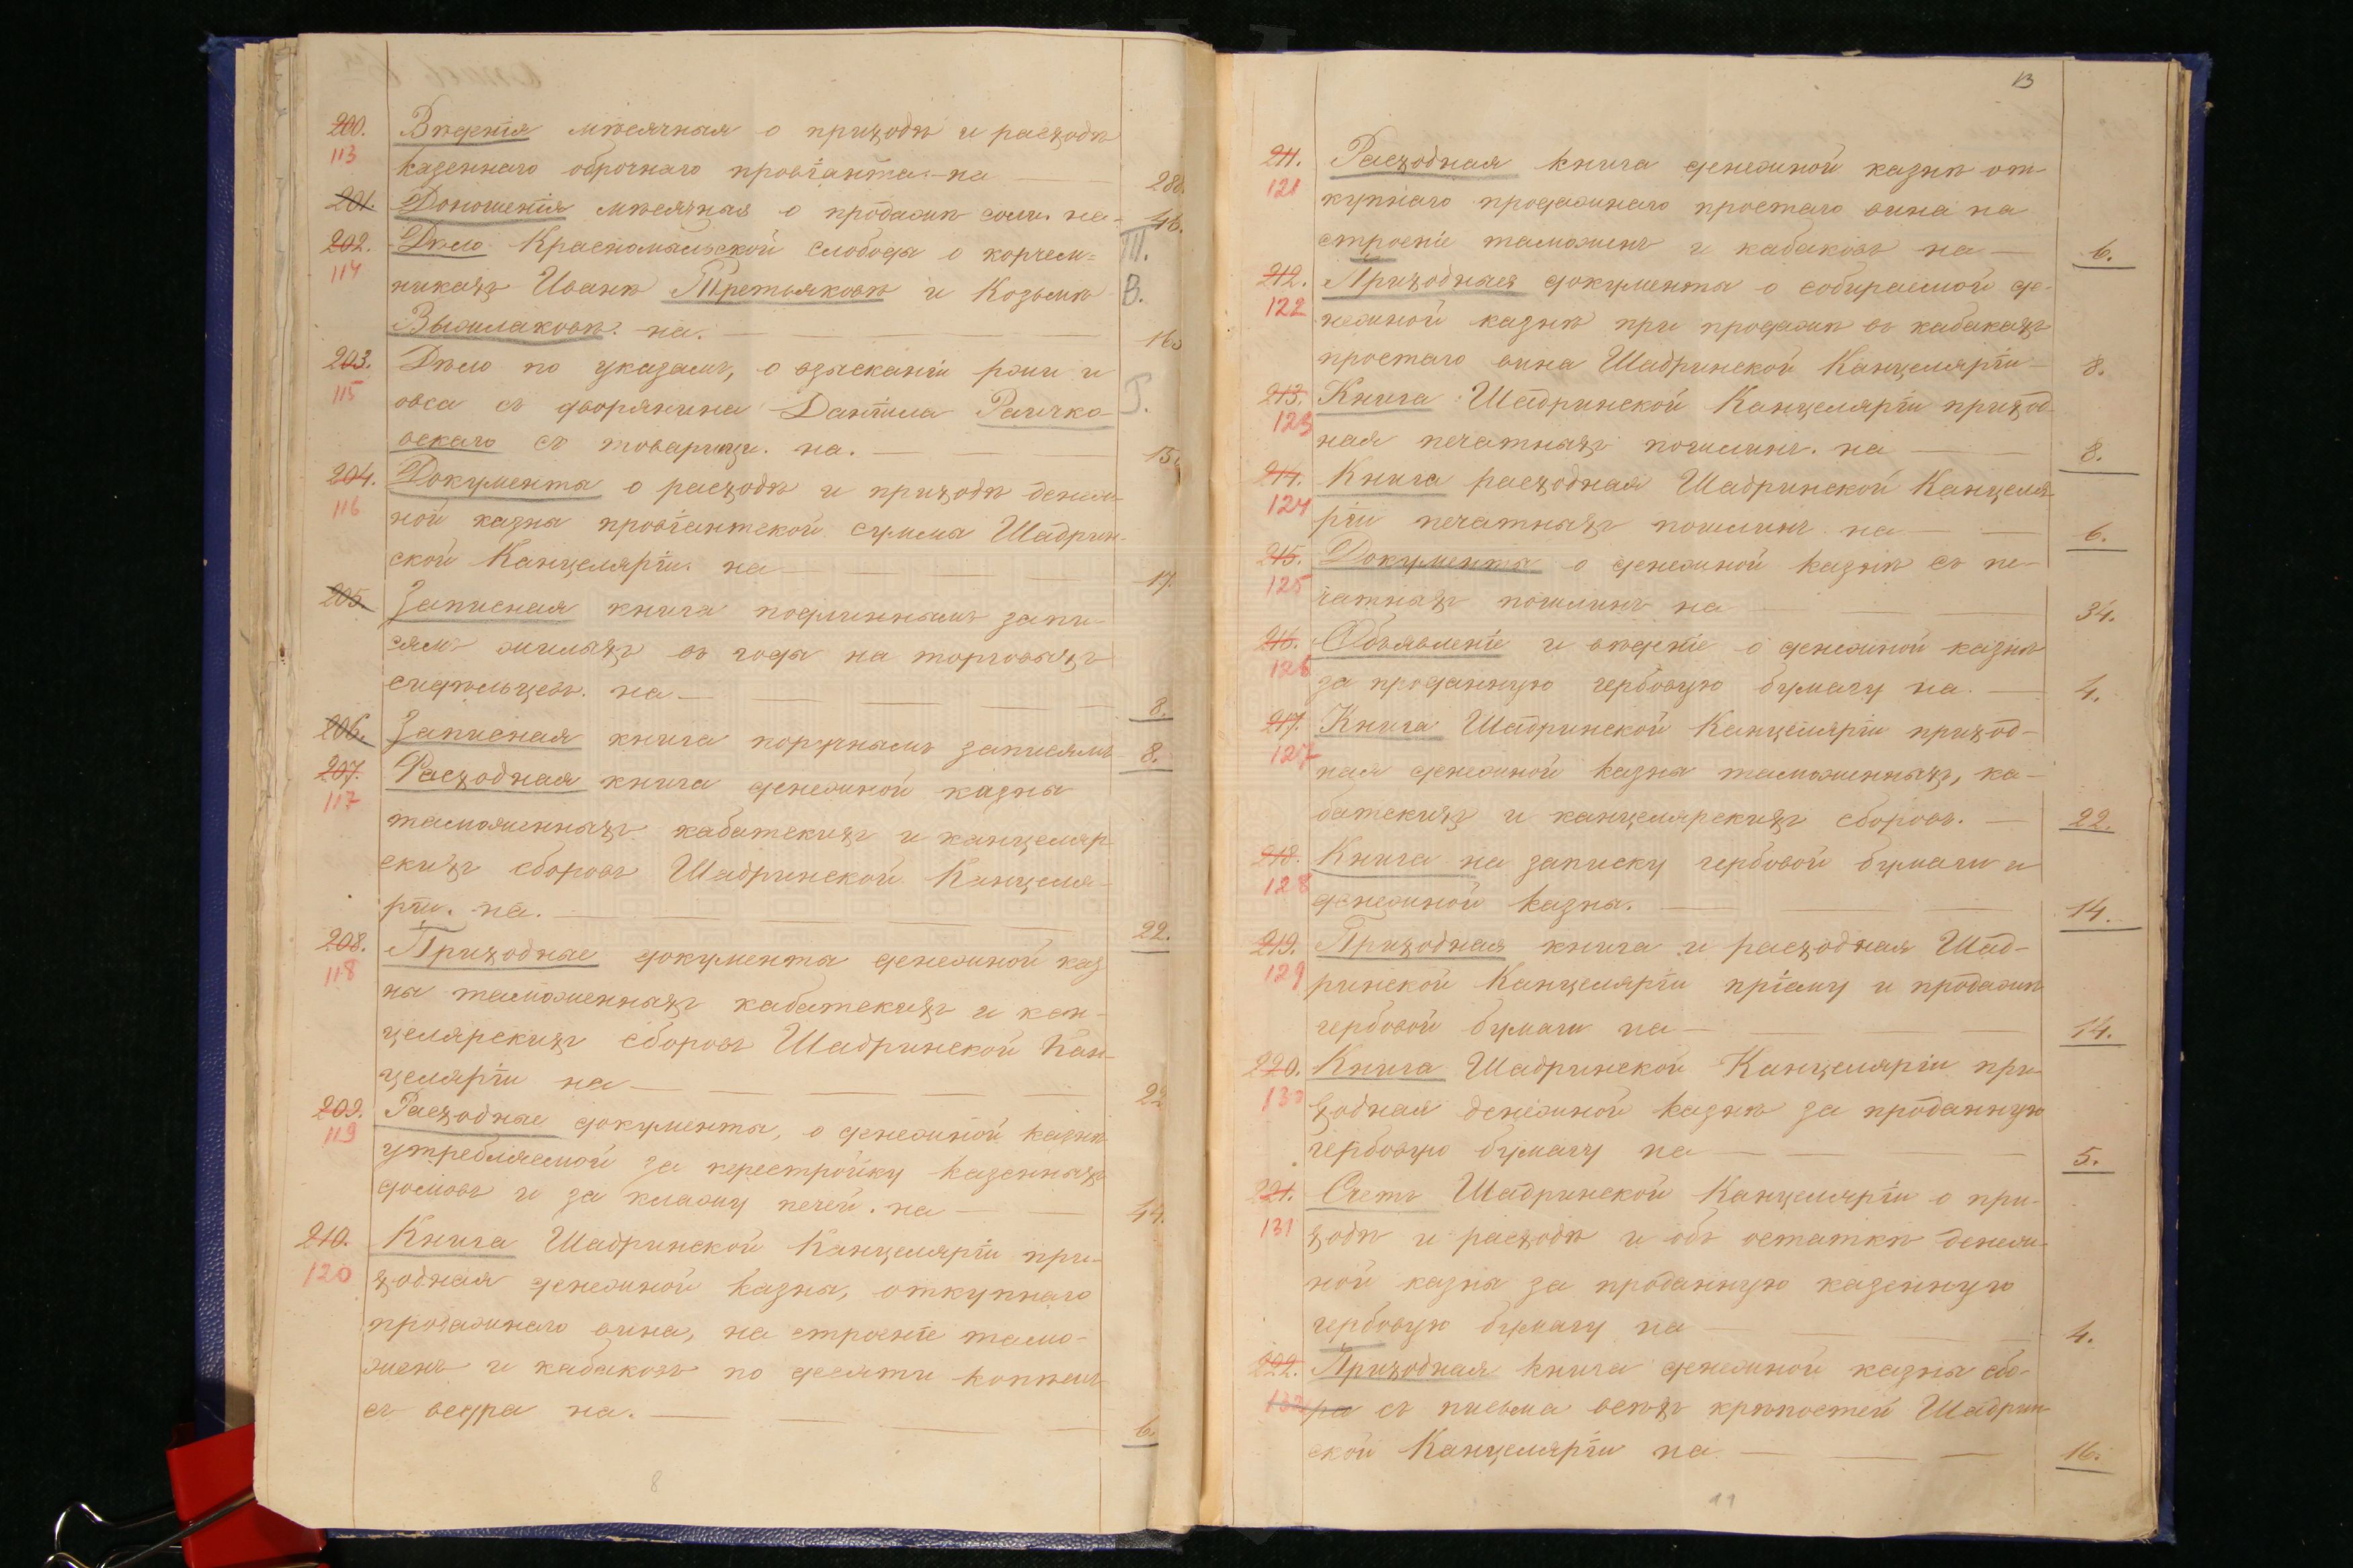 200. Вѣденія мѣсячныя о приходѣ и расходѣ
113 казеннаго оброчнаго провіанта на — 288.
201. Доношенія мѣсячныя о продажѣ соли. на — 46.
202. Дѣло Красномыльской слободы о корчем= III.
114 никахъ Иванѣ Третьяковѣ и Козьмѣ В.
Вышлаковѣ. на. — 163
203. Дѣло по указамъ, о взысканіи ржи и
115 овса съ дворянина Даніила Раичко-
вскаго съ товарищи. на. — 15
204. Документы о расходѣ и приходѣ денеж-
116 ной казны провіантской суммы Шадрин-
ской Канцеляріи. на — 17.
205. Записная книга подлиннымъ запи-
сямъ жилыхъ въ годы на торговыхъ
сидѣльцевъ. на — 8.
206. Записная книга поручнымъ записямъ 8.
207. Расходная книга денежной казны
117 таможенныхъ кабатскихъ и канцеляр-
скихъ сборовъ Шадринской Канцеля-
ріи. на. — 22.
208. Приходные документы денежной каз
118 ны таможенныхъ кабатскихъ и кан-
целярскихъ сборовъ Шадринской Кан-
целяріи на — 22
209. Расходные документы, о денежной казнѣ
119 утребляемой за перестройку казенныхъ
домовъ и за кладку печей. на — 44.
210. Книга Шадринской Канцеляріи при-
120 ходная денежной казны, откупнаго
продажнаго вина, на строеніе тамо-
женъ и кабаковъ по десяти копѣекъ
съ ведра на. — 6.
8
13
211. Расходная книга денежной казнѣ от-
121 купнаго продажнаго простаго вина на
строеніе таможенъ и кабаковъ на — 6.
212. Приходныя документы о собираемой де-
122 нежной казнѣ при продажѣ въ кабакахъ
простаго вина Шадринской Канцеляріи — 8.
213. Книга Шадринской Канцеляріи приход-
123 ная печатныхъ пошлинъ. на — 8.
214. Книга расходная Шадринской Канцеля-
124 ріи печатныхъ пошлинъ на — 6.
215. Документы о денежной казнѣ съ пе-
125 чатныхъ пошлинъ на — 34.
216. Объявленіе и вѣденіе о денежной казнѣ
126 за проданную гербовую бумагу на. — 4.
217. Книга Шадринской Канцеляріи приход-
127 ная денежной казны таможенныхъ, ка-
батскихъ и канцелярскихъ сборовъ. — 22.
218. Книга на записку гербовой бумаги и
128 денежной казны. — 14.
219. Приходная книга и расходная Шад-
129 ринской Канцеляріи пріему и продажѣ
гербовой бумаги на — 14.
220. Книга Шадринской Канцеляріи при-
130 ходная денежной казнѣ за проданную
гербовую бумагу на — 5.
221. Счетъ Шадринской Канцеляріи о при-
131 ходѣ и расходѣ и объ остаткѣ денеж-
ной казны за проданную казенную
гербовую бумагу на — 4.
222. Приходная книга денежной казны сбо-
132 ра съ письма всѣхъ крѣпостей Шадрин-
ской Канцеляріи на — 16.
11